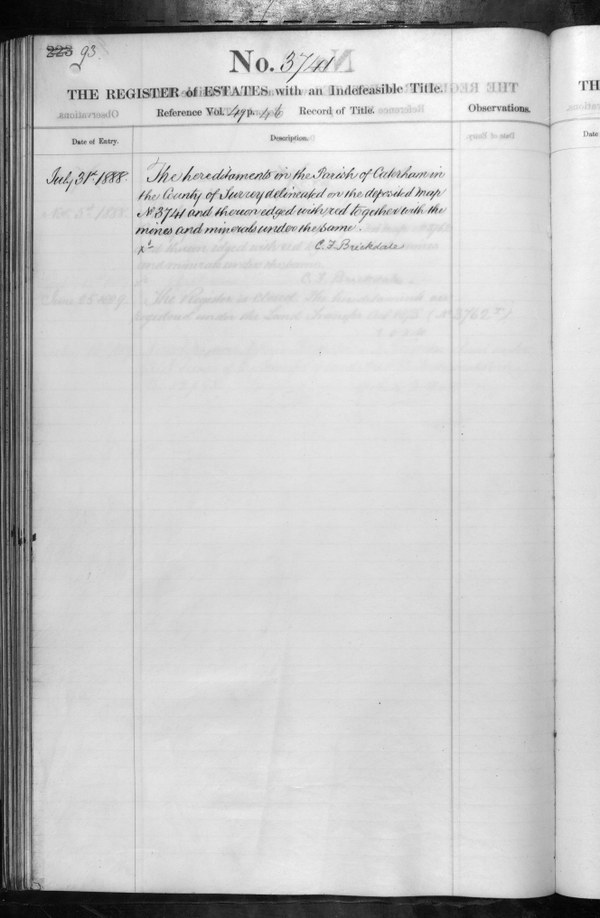 223 93
No. 3741
THE REGISTER of ESTATES with an Indefeasible Title.
Reference Vol. 49 p. 46 Record of Title.
Observations.
Date of Entry.
Description.
July 31st 1888.
The hereditaments in the Parish of Caterham in
the County of Surrey delineated on the deposited map
No. 3741 and thereon edged with red together with the
mines and minerals under the same.
C. F. Brickdale
TH
Date